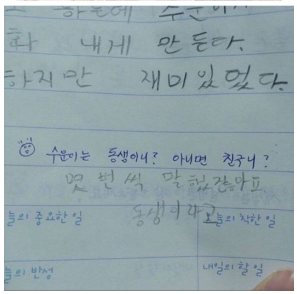 하는에 수운이가
화 내게 만든다.
하지만 재미있었다.
수운이는 동생이니? 아니면 친구니?
몇 번씩 말했잖아요
동생이라고
늘의 중요한 일 오늘의 착한 일
늘의 반성 내일의 할 일